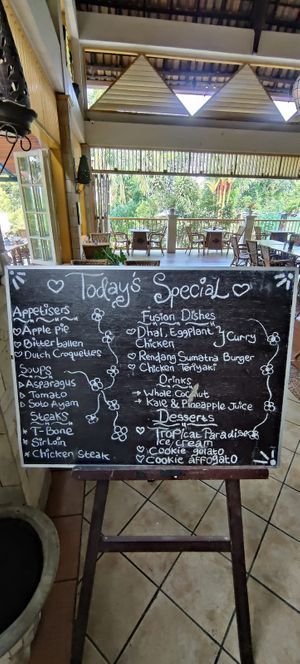 Today's Special
Appetisers
Apple Pie
Bitterballen
Dutch Croquettes
Soups
Asparagus
Tomato
Soto Ayam
Steaks
T-Bone
Sirloin
Chicken Steak
Fusion Dishes
Dhal, Eggplant } Curry
Chicken
Rendang Sumatra Burger
Chicken Teriyaki
Drinks
Whole Coconut
Kale & Pineapple Juice
Desserts
Tropical Paradise
Ice Cream
Cookie gelato
Cookie affogato